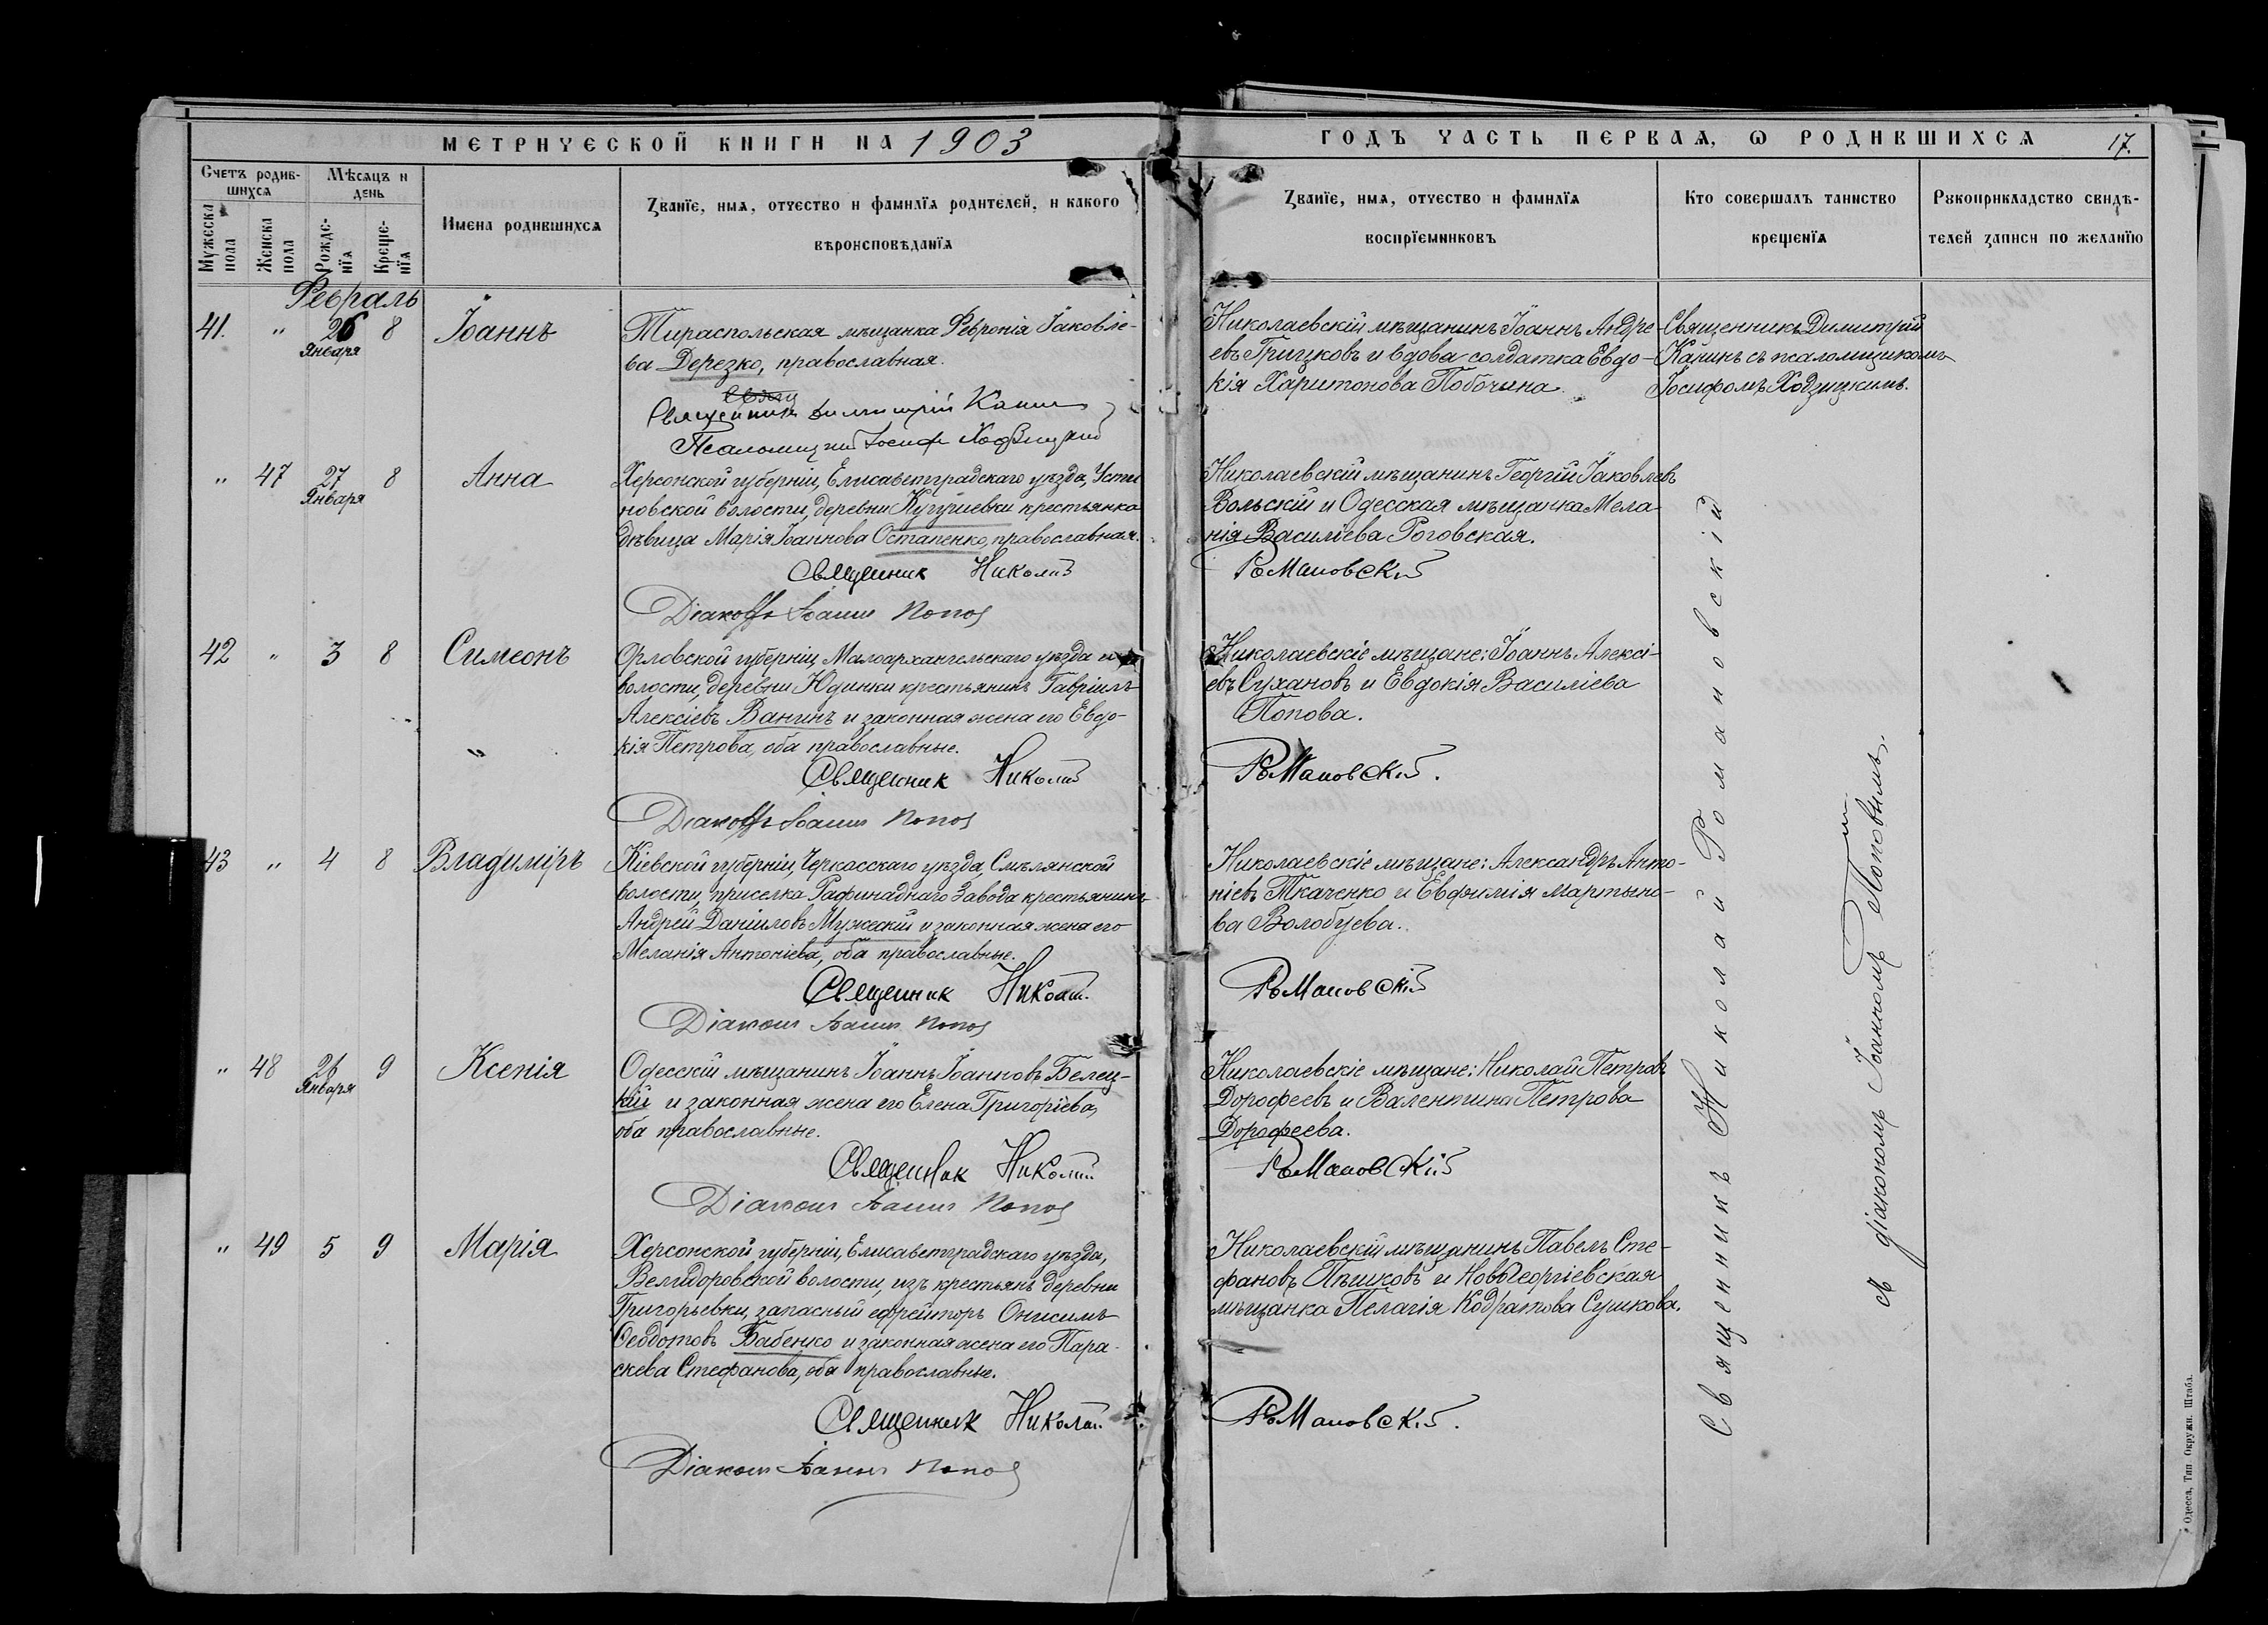 МЕТРИЧЕСКОЙ КНИГИ НА 1903
Счетъ родив-
шихся
Мѣсяцъ и
день
Мужеска
пола
Женска
пола
Рожде-
нїя
Креще-
нїя
Имена родившихся
Званїе, имя, отчество и фамилїя родителей, и какого
вѣроисповѣданїя
Февраль
41. " 26 8 Іоаннъ
Января
Тираспольская мѣщанка Февронія Іаковле-
ва Дерезко, православная.
Священникъ Димитрій Канинъ
Псаломщикъ Іосифъ Ходзицкій
" 47 27 8 Анна
Января
Херсонской губерніи, Елисаветградскаго уѣзда, Усти
новской волости, деревни крестьянка
дѣвица Марія Іоаннова Остапенко, православная.
Священник Николай
Діаконъ Іоаннъ Попов
42 " 3 8 Симеонъ
Орловской губерніи Малоархангельскаго уѣзда и
волости, деревни Юдинки крестьянинъ Гавріилъ
Алексіевъ Ванинъ и законная жена его Евдо-
кія Петрова, оба православные.
"
Священник Николай
Діаконъ Іоаннъ Попов
43 " 4 8 Владиміръ
Кіевской губерніи, Черкасскаго уѣзда, Смѣлянской
волости, приселка Рафинаднаго Завода крестьянинъ
Андрей Даніиловъ Мужескій и законная жена его
Меланія Антоніева, оба православные.
Священник Николай
Діаконъ Іоаннъ Попов
" 48 26 9 Ксенія
Января
Одесскій мѣщанинъ Іоаннъ Іоанновъ Белец-
кій и законная жена его Елена Григоріева,
оба православные.
Священник Николай
Діаконъ Іоаннъ Попов
" 49 5 9 Марія
Херсонской губерніи, Елисаветградскаго уѣзда,
волости, изъ крестьянъ деревни
Григорьевки, запасный ефрейторъ Онисимъ
Ѳеодотовъ Бабенко и законная жена его Пара-
скева Стефанова, оба православные.
Священник Николай
Діаконъ Іоаннъ Попов
ГОДЪ ЧАСТЬ ПЕРВАЯ, Ѡ РОДИВШИХСЯ 17.
Званїе, имя, отчество и фамилїя
воспрїемниковъ
Кто совершалъ таинство
крещенїя
Рукоприкладство свидѣ-
телей записи по желанїю
Николаевскій мѣщанинъ Іоаннъ Андре-
евъ Грицковъ и вдова солдатка Евдо-
кія Харитонова Побочина.
Священникъ Димитрій
Канинъ съ псаломщикомъ
Іосифомъ Ходзицкимъ.
Николаевскій мѣщанинъ Георгій Іаковлевъ
Вольскій и Одесская мѣщанка Мела
нія Василіева Роговская.
Романовскій
Николаевскіе мѣщане: Іоаннъ Алексі-
евъ Сухановъ и Евдокія Василіева
Попова.
Романовскій.
Николаевскіе мѣщане: Александръ Анто-
ніевъ Ткаченко и Евфимія Мартыно-
ва Волобуева.
Романовскій
Николаевскіе мѣщане: Николай Петровъ
Дорофеевъ и Валентина Петрова
Дорофеева.
Романовскій
Николаевскій мѣщанинъ Павелъ Сте-
фановъ Пѣшковъ и Новогеоргіевская
мѣщанка Пелагія Кодратова Сушкова.
Романовскій.
Священникъ Николай Романовскій
съ діакономъ Іоанномъ Поповымъ.
Одесса, Тип. Окружн. Штаба.